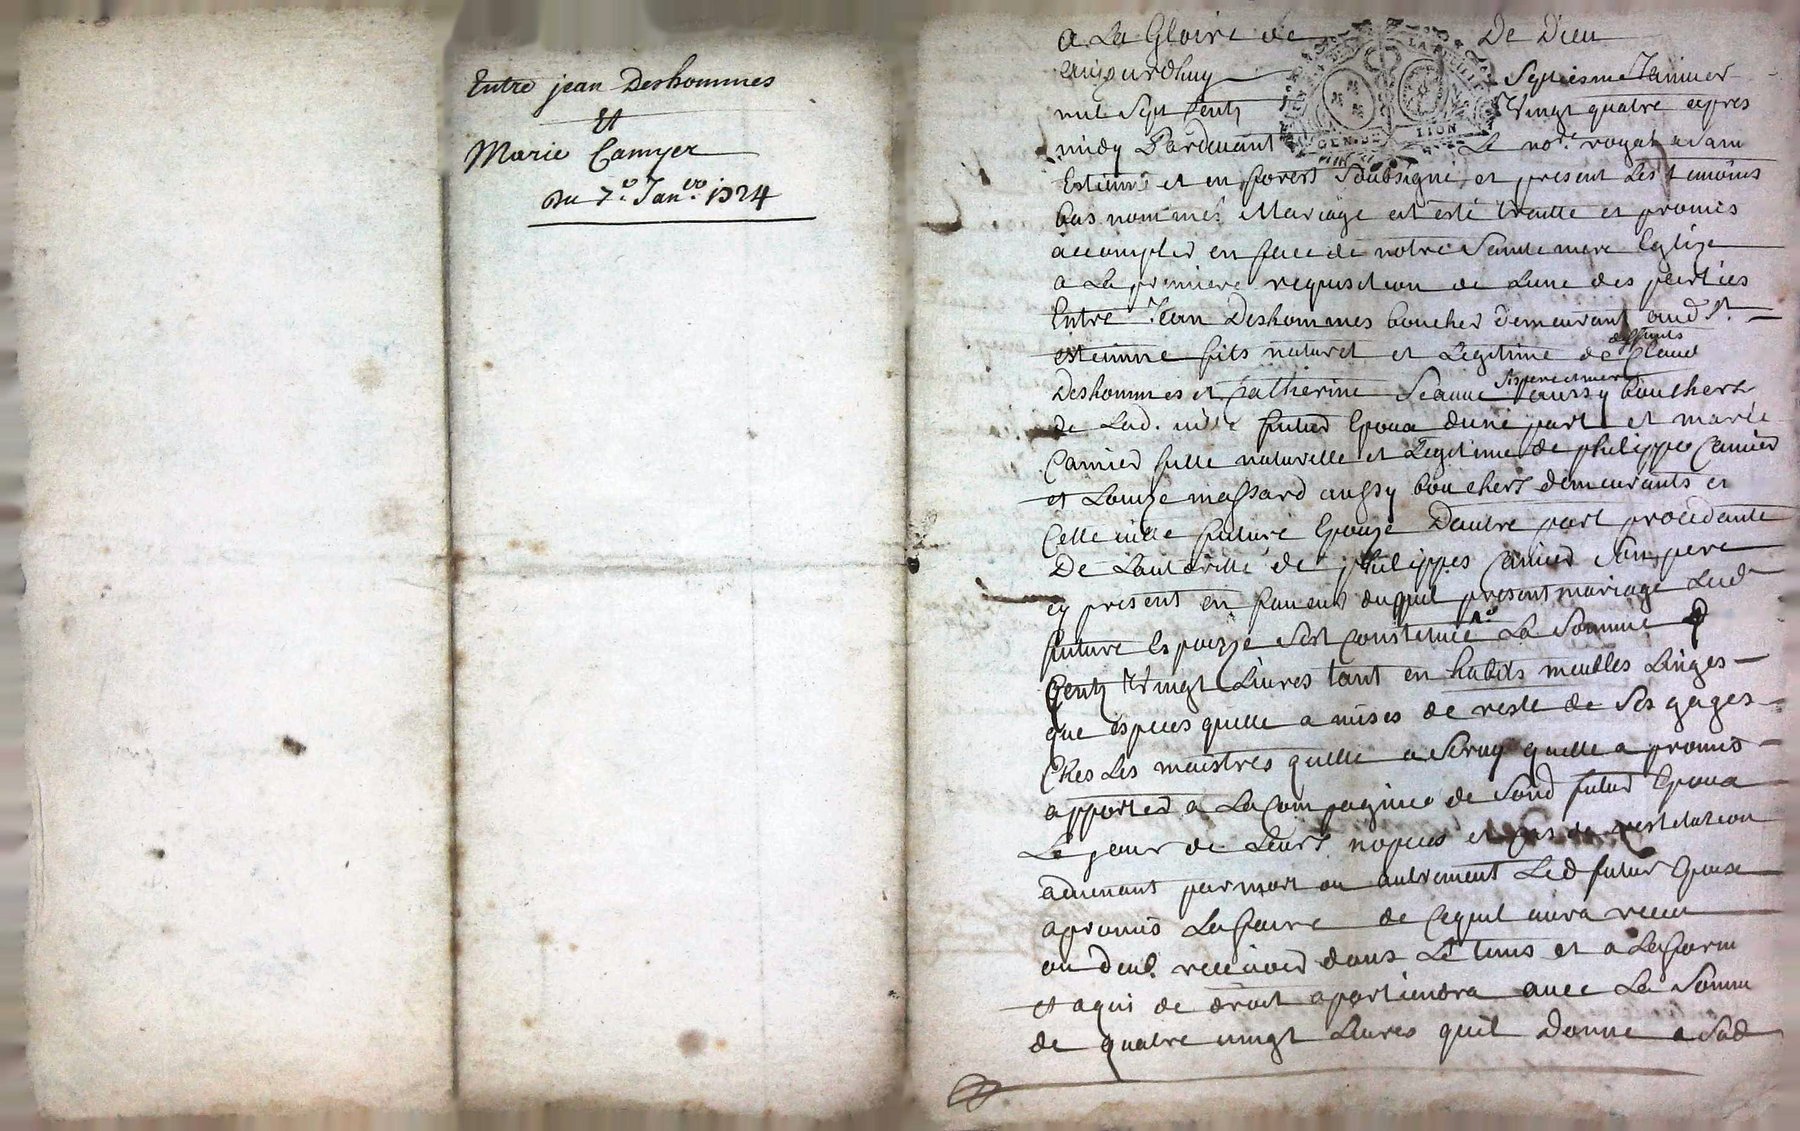 Entre jean Deshommes
Et
Marie Camyer
Du 7.e Jan.vo 1724
A La Gloire de De Dieu
aujourdhuy Septiesme Januier
mil Sept Centz Vingt quatre apres
midy Pardeuant Le no.e royal
Estienne et en forets Soubsigné, et present Les temoins
bas nommés Mariage est esté traitte et promis
accomplir en face de notre Sainte mere Eglize
a La premiere requisition de Lune des parties
Entre Jean Deshommes boucher demeurant aud St.
estienne fils naturel et Legitime de deffunts Claud
Deshommes et Catherine Seauve ses pere et mere aussy bouchers
de Lad. ville futur Epoux dune part et marie
Camier fille naturelle et Legitime de philippes Camier
et Louize massard aussy bouchers demeurants en
Cette ville future Epouze Dautre part procedante
De Lautorité de philippes Camier Son pere
cy present en faueur duquel present mariage Lad
future Espouze Sest Constituée La Somme
Centz Vingt Liures tant en habits meubles Linges
que especes quelle a mises de reste de Ses gages
Ches Les maistres quelle a Seruy quelle a promis
apporter a La Compagnie de Sond futur Epoux
Le jour de Leurs nopces et Cas de restitution
aduenant par mort ou autrement Led futur Epoux
a promis La faire de Cequil aura receu
ou deub receuoir dans Le tems et a La forme
et a qui de droit apartiendra auec La Somme
de quatre vingt Liures quil donne a Sad